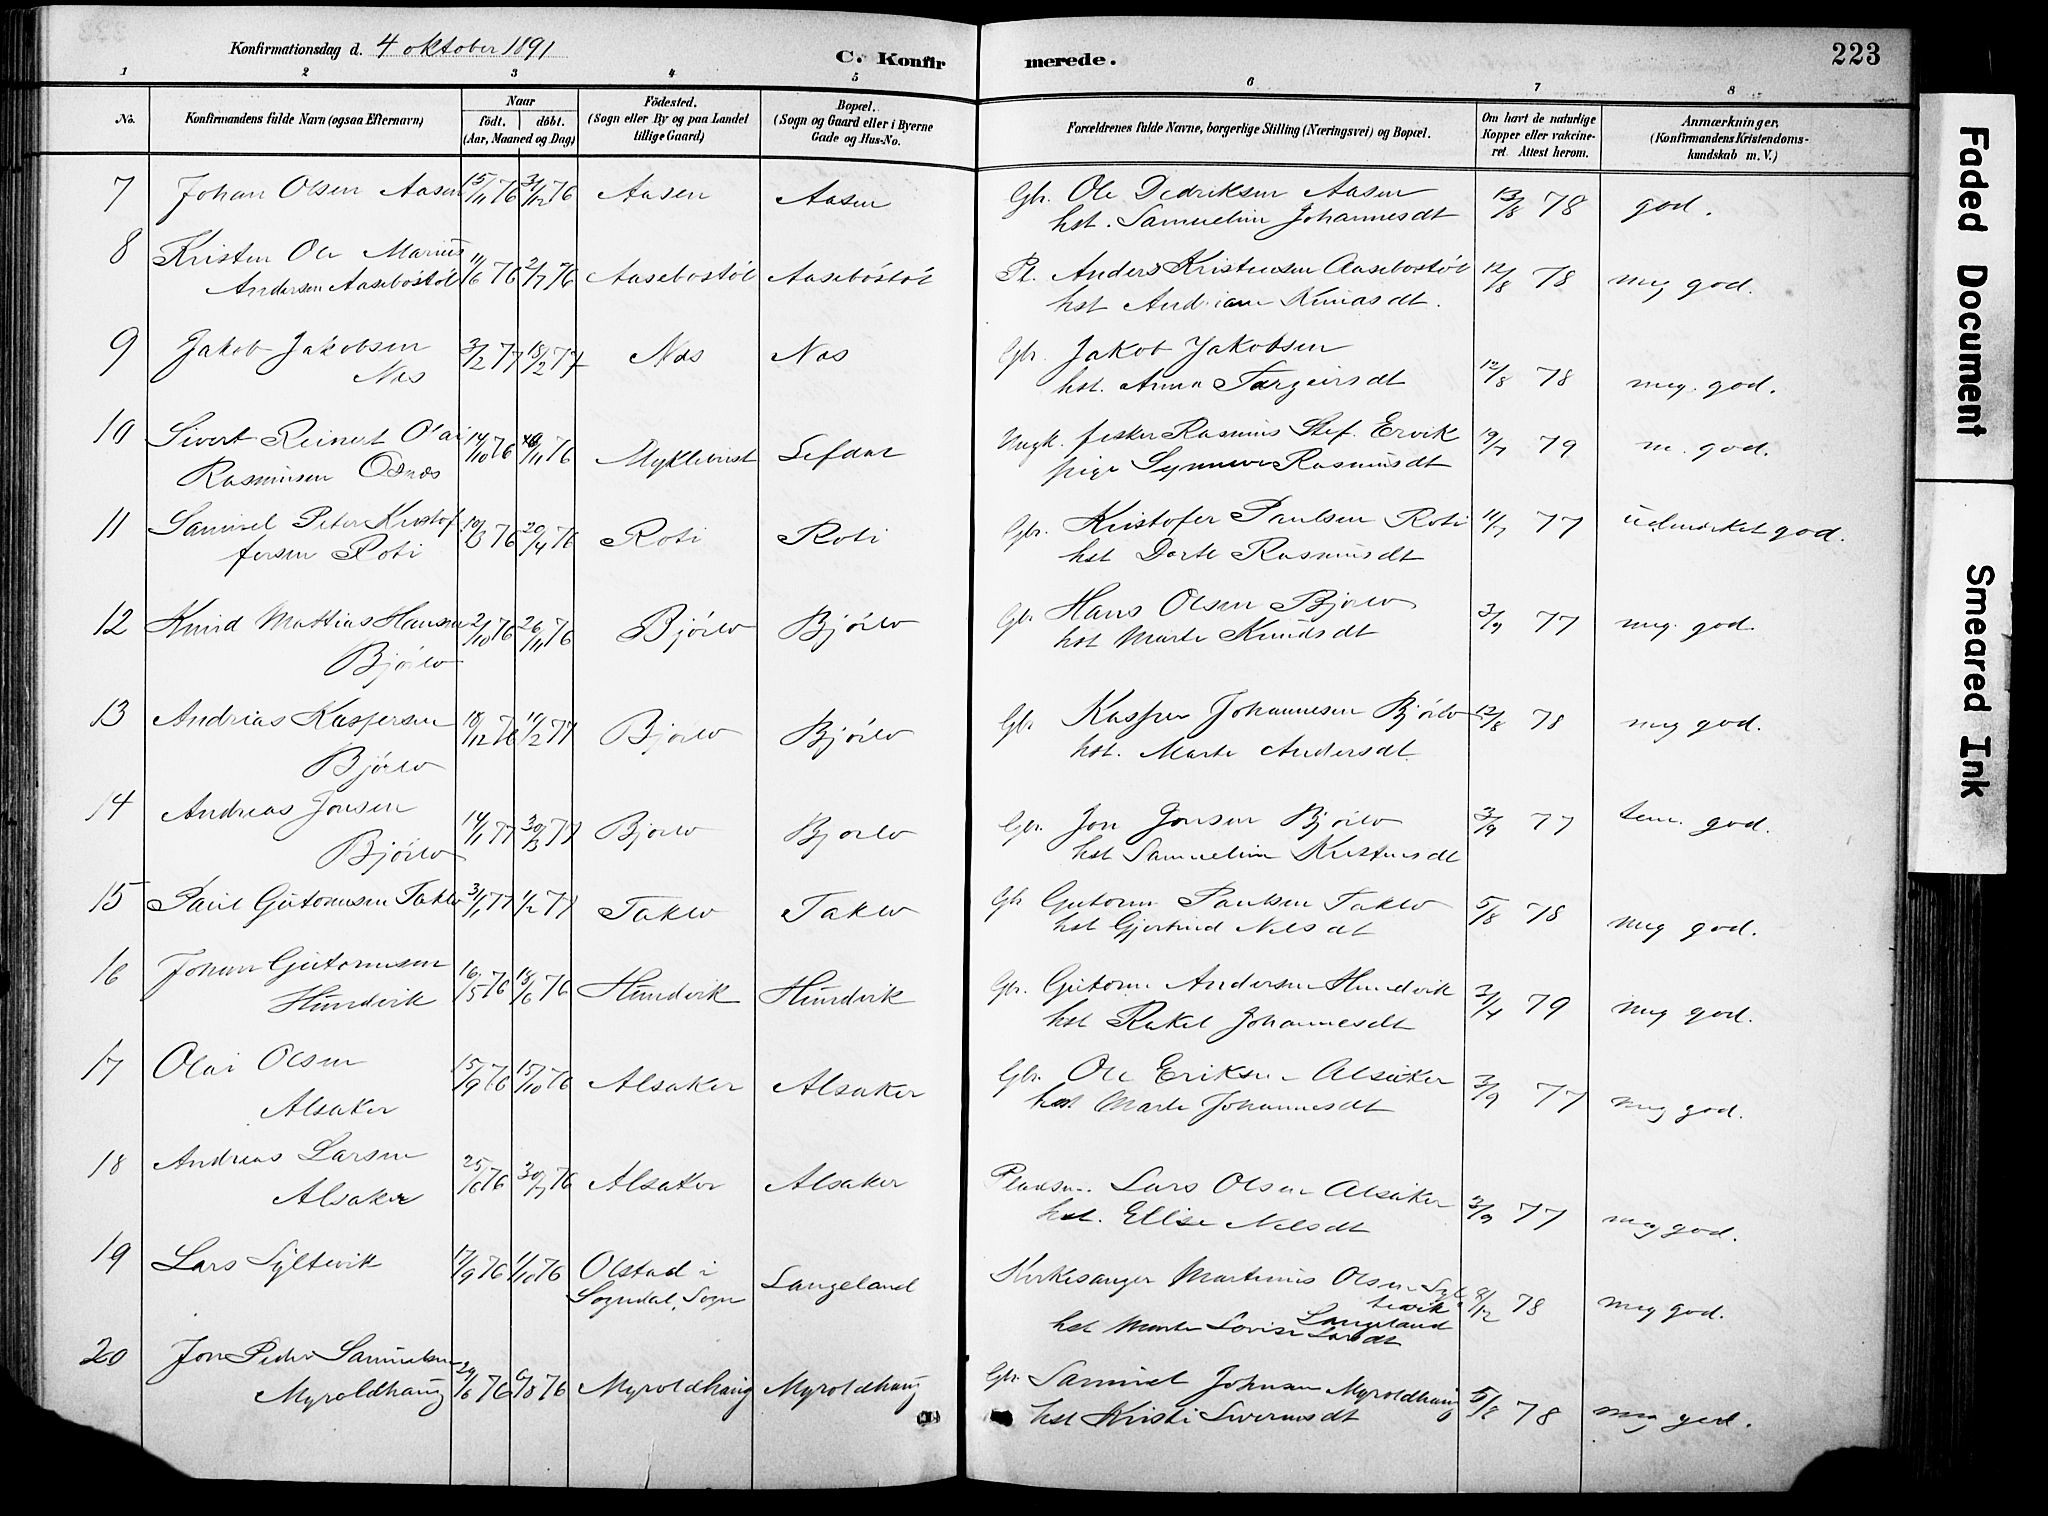 Konfirmationsdag d. 4 oktober 1891
C. Konfirmerede.
223
1 2 3 4 5 6 7 8
No.
Konfirmandens fulde Navn (ogsaa Efternavn)
Naar
födt. döbt.
(Aar, Maaned og Dag)
Födested.
(Sogn eller By og paa Landet
tillige Gaard)
Bopæl.
(Sogn og Gaard eller i Byerne
Gade og Hus-No.
Forældrenes fulde Navne, borgerlige Stilling (Næringsvei) og Bopæl.
Om havt de naturlige
Kopper eller vakcine-
ret. Attest herom.
Anmærkninger,
(Konfirmandens Kristendoms-
kundskab m. V.)
7 Johan Olsen Aasen 15/11 76 31/12 76 Aasen Aasen Gbr. Ole Dedriksen Aasen 12/8 78 god.
hst. Samueline Johannesdt
8 Kristen Ole Marius 11/6 76 2/7 76 Aasebøstøl Aasebøstøl Pl. Anders Kristensen Aasebøstøl 12/8 78 meg god.
Andersen Aasebøstøl hst Andriane
9 Jakob Jakobsen 3/2 77 18/2 77 Nos Nos Gbr. Jakob Jakobsen 12/8 78 meg. god.
Nos hst. Anna Torgeirsdt
10 Sivert Reinert Olai 14/10 76 /11 76 Myklebust Lefdal Ungk. fisker Rasmus Stef. Ervik 19/7 79 m. god.
Rasmusen Osnes pige Synneve Rasmusdt
11 Samuel Peter Kristof- 10/3 76 20/4 76 Roti Roti Gbr. Kristofer Paulsen Roti 11/7 77 udmerket god.
fersen Roti hst Dorte Rasmusdt
12 Knud Mattias Hansen 2/10 76 26/11 76 Bjørlo Bjørlo Gbr. Hans Olsen Bjørlo 3/9 77 meg. god.
Bjørlo hst Marte Knudsdt
13 Andrias Kaspersen 18/12 76 11/2 77 Bjørlo Bjørlo Gbr Kasper Johannesen Bjørlo 12/8 78 meg god.
Bjørlo hst. Marte Andersdt.
14 Andreas Jonsen 14/1 77 30/3 77 Bjorlo Bjorlo Gbr. Jon Jonsen Bjørlo 3/9 77 tem. god.
Bjørlo hst Samueline Kristensdt
15 Paul Gutormsen Taklo 3/1 77 1/2 77 Taklo Taklo Gbr Gutorm Paulsen Taklo 5/8 78 meg god.
hst Gjertrud Nelsdt
16 Johan Gutormsen 16/5 76 18/6 76 Hundvik Hundvik Gbr. Gutorm Andersen Hundvik 3/4 79 meg god.
Hundvik hst Rakel Johannesdt
17 Olai Olsen 15/9 76 15/10 76 Alsaker Alsaker Gbr. Ole Eriksen Alsaker 3/9 77 meg god.
Alsaker hst Marte Johannesdt
18 Andreas Larsen 25/6 76 30/7 76 Alsaker Alsaker Pladsm. Lars Olsen Alsaker 3/9 77 meg god.
Alsaker hst. Ellise Nelsdt
19 Lars Syltevik 17/9 76 1/10 76 Olstad i Langeland Kirkesanger Martinus Olsen Syl- /12 78 meg god.
Sogndal, Sogn tevik
Langeland
hst Marte Lovise Larsdt
20 Jon Peder Samuelsen 24/6 76 6/8 76 Myroldhaug Myroldhaug Gbr. Samuel Johnsen Myroldhaug 5/8 78 meg god.
Myroldhaug hst Kristi Sivertsdt
Faded Document
Smeared Ink